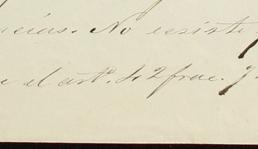 ncias. No existe
el artº. 42 frac.